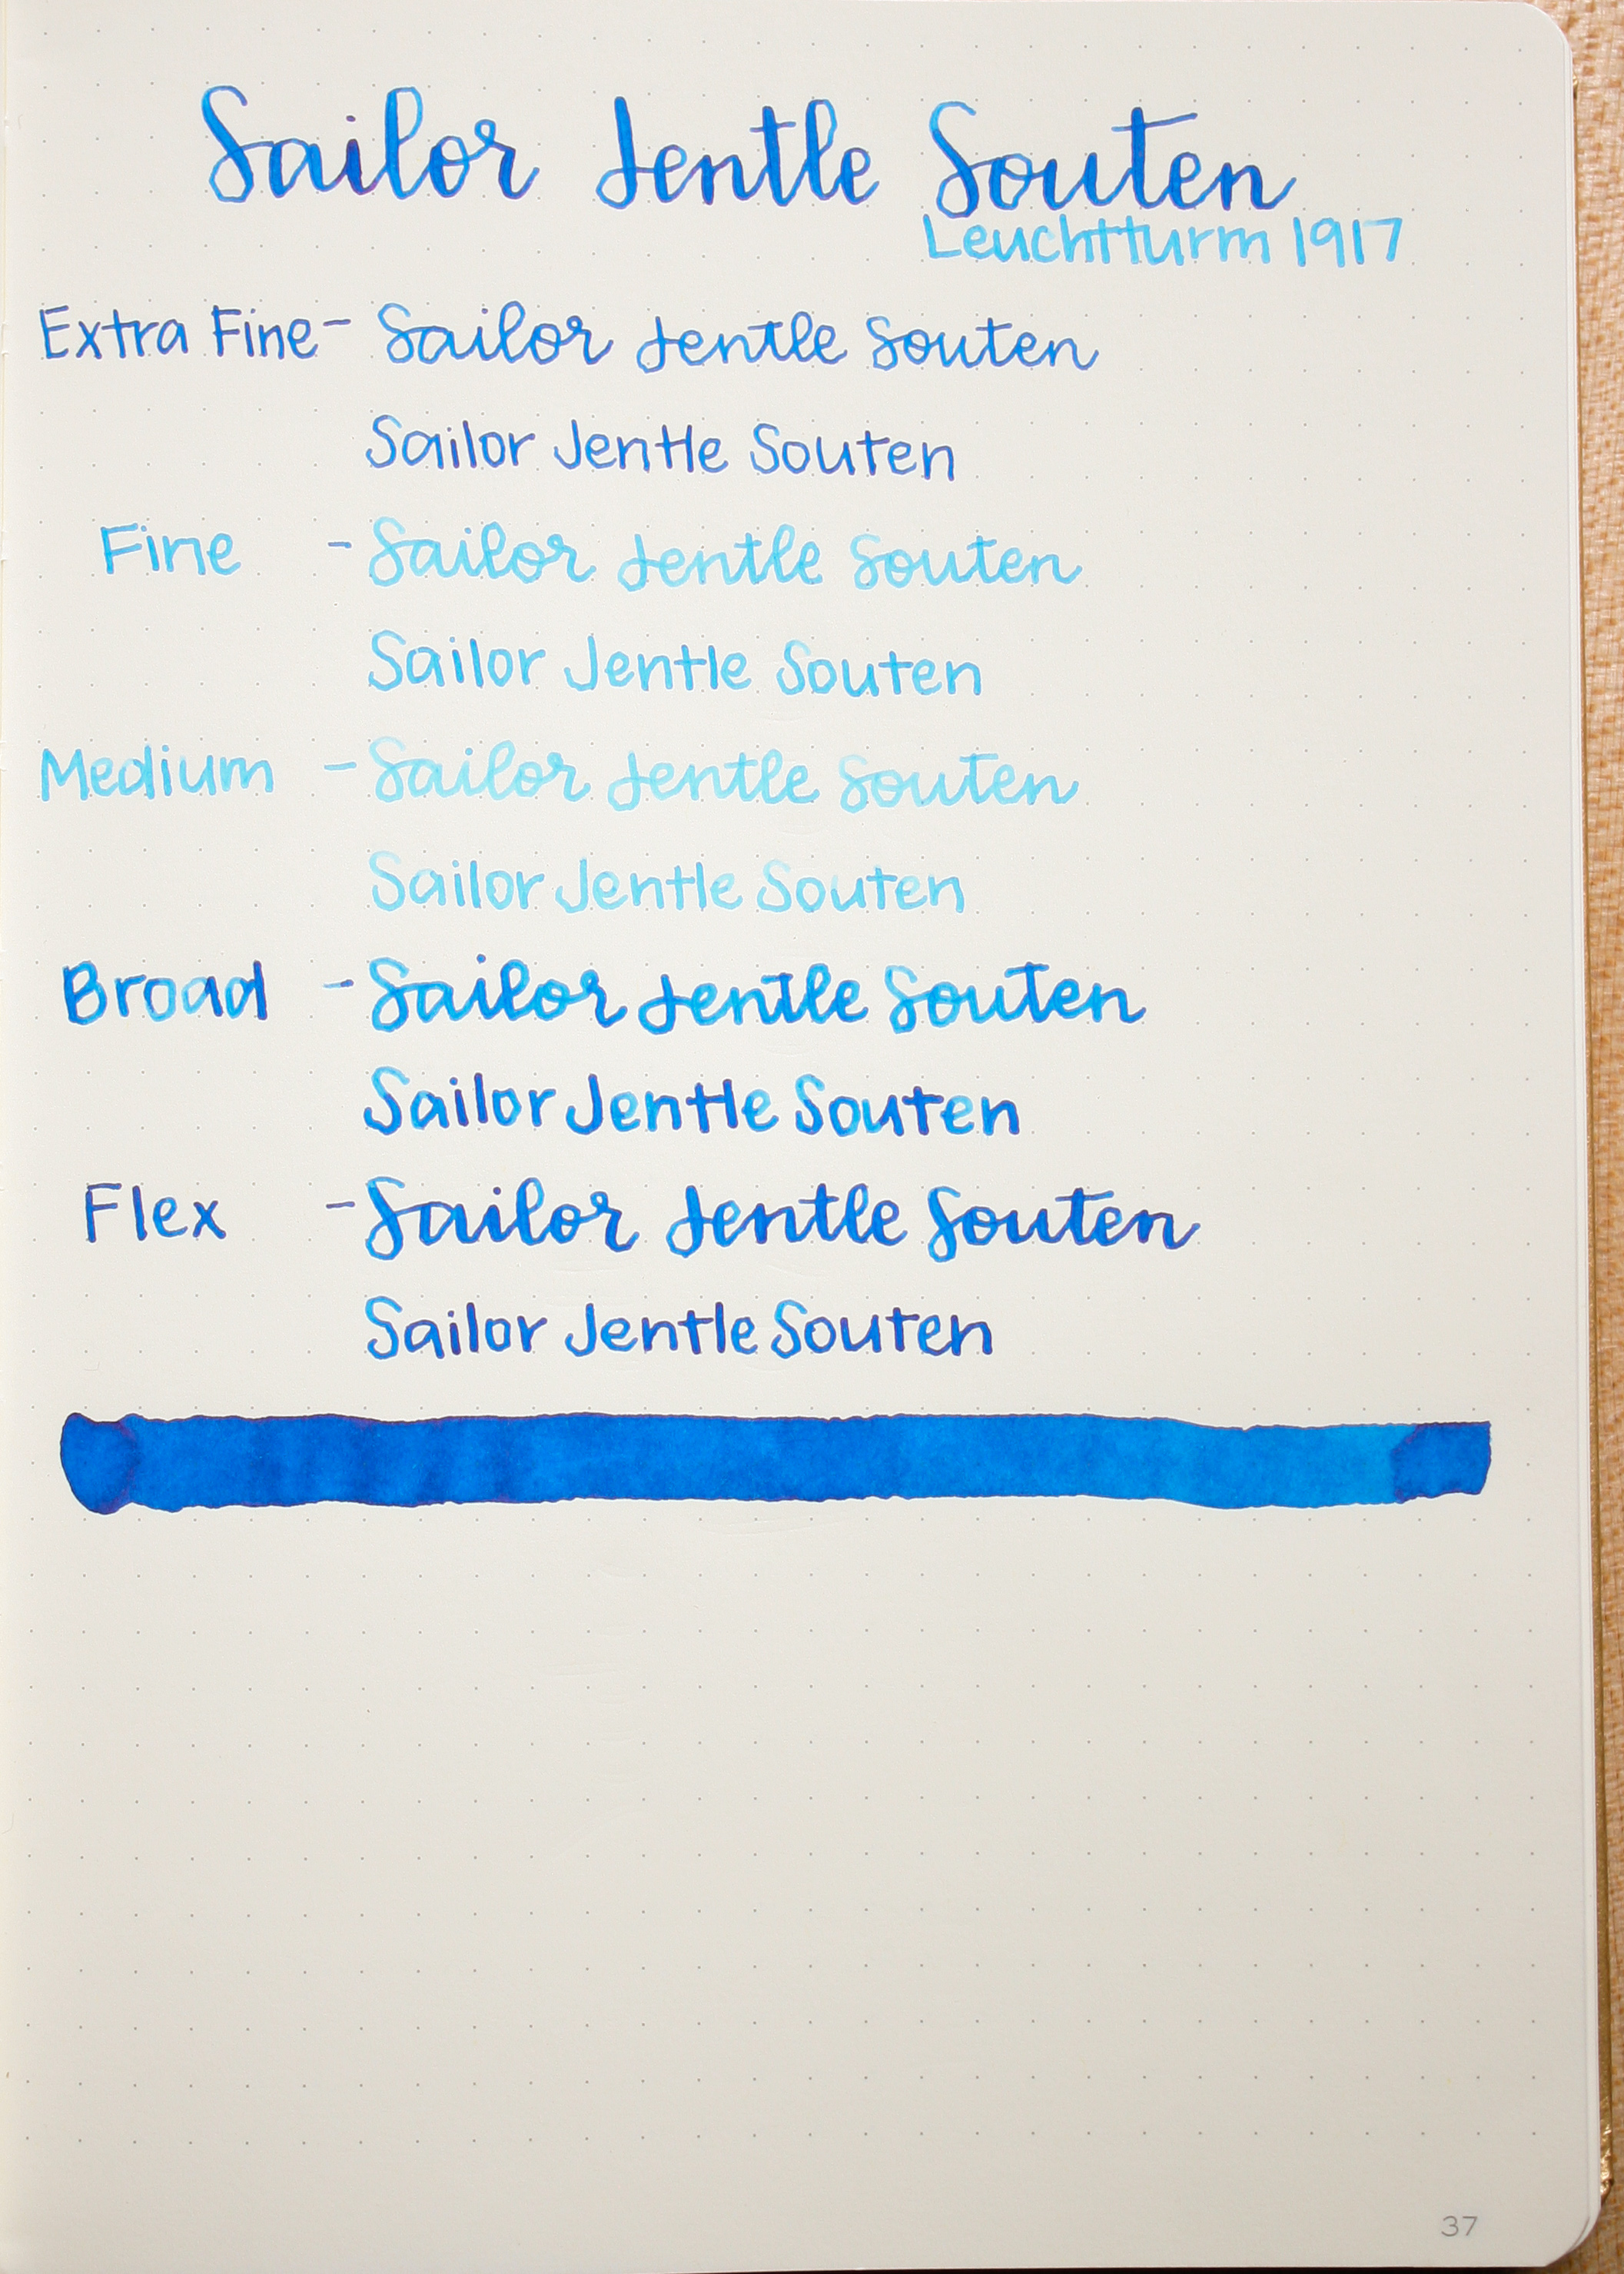 Sailor Jentle Souten
Leuchtturm 1917
Extra Fine - Sailor Jentle Souten
Sailor Jentle Souten
Fine - Sailor Jentle Souten
Sailor Jentle Souten
Medium - Sailor Jentle Souten
Sailor Jentle Souten
Broad - Sailor Jentle Souten
Sailor Jentle Souten
Flex - Sailor Jentle Souten
Sailor Jentle Souten
37